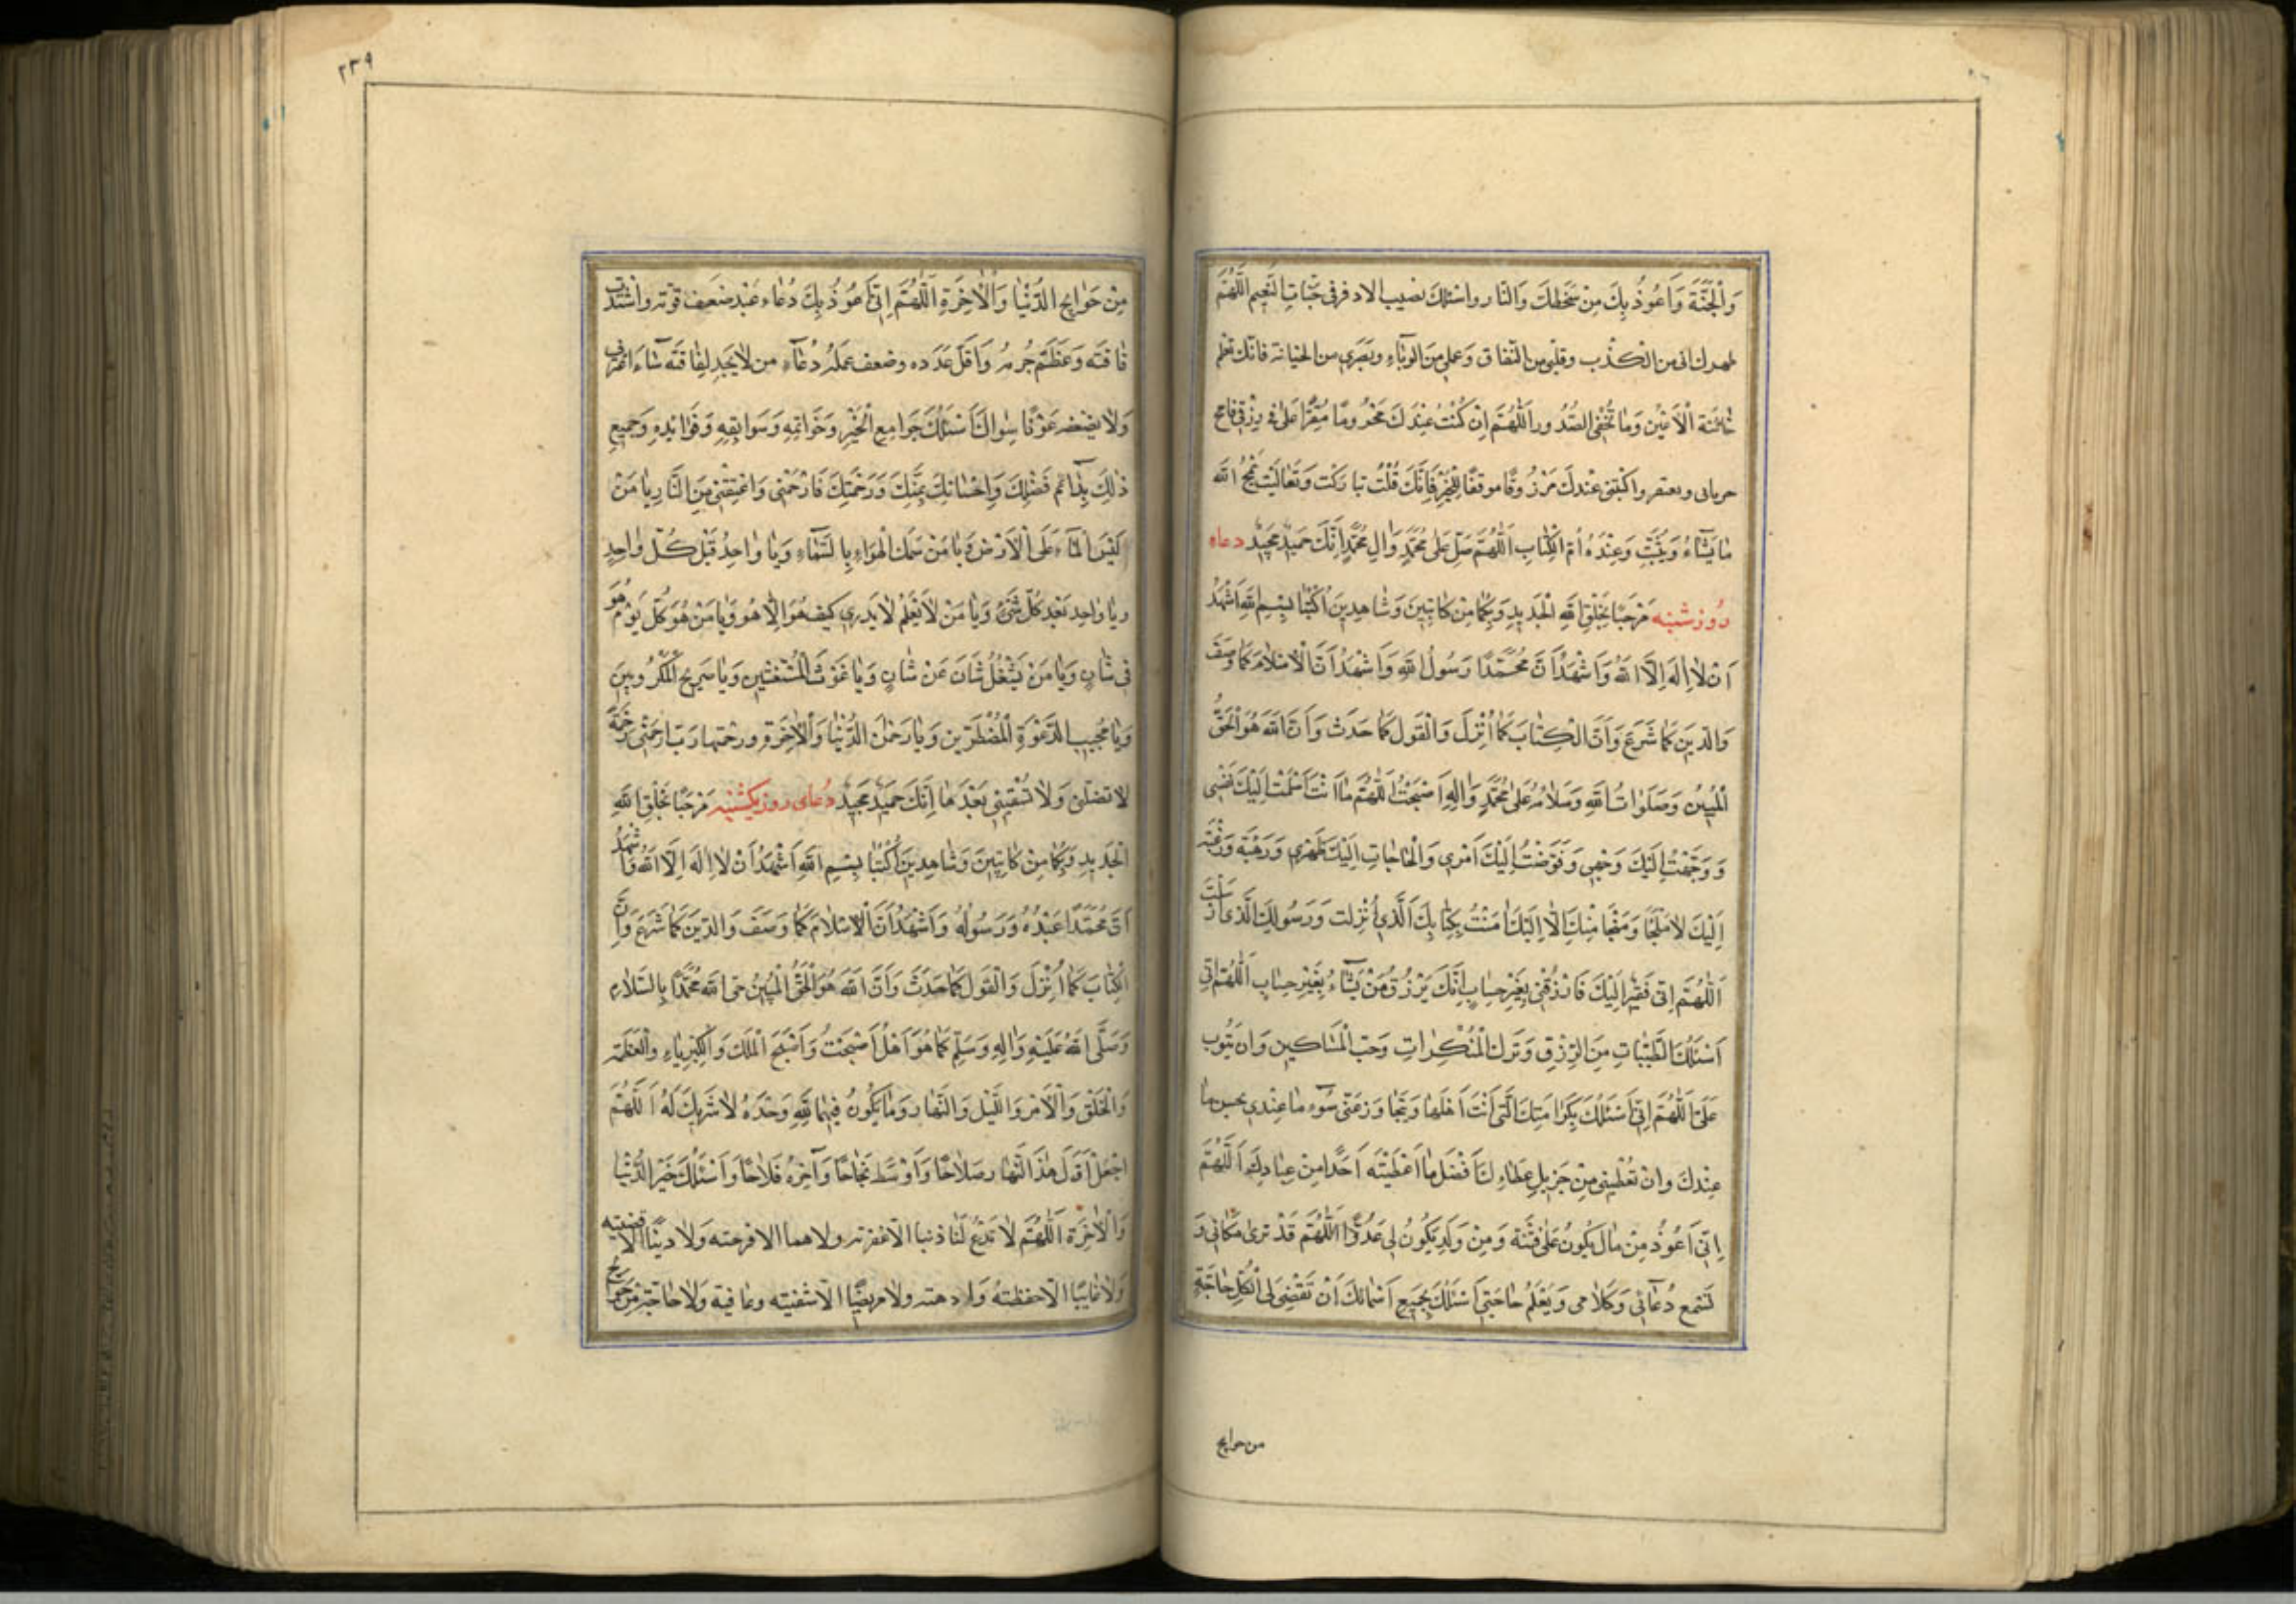 وَالْجَنَّةَ وَاَعُوذُ بِكَ مِنْ سَخَطِكَ وَالنّار واسئلك نصيب الاوفر فى جَنّاتِ النَّعيم اللّٰهُمَّ
طهر لسانى من الكذب وقلبى من النّفاق وَعملى مِنَ الرِّيَاءِ وبَصَرى من الخيانة فانّك تعلم
خائنَةَ الْاَعْيُنِ وَمٰا تُخْفِى الصُّدُور اَللّٰهُمَّ اِنْ كُنْتُ عِنْدَكَ مَحْرُومًا مُقَتَّرًا عَلَىَّ فى رِزْقى فامح
حرمانى و اكْتُبْنى عِنْدَكَ مَرْزُوقًا موفقًا لِلْخَيْرِ فَاِنَّكَ قُلْتَ تباركْت وَتَعٰالَيْتَ يَمْحُ الله
مٰا يَشٰاءُ وَيُثْبِتُ وَعِنْدَهُ اُمُّ الْكِتٰابِ اَللّٰهُمَّ صَلِّ عَلىٰ مُحَمَّدٍ وَاٰلِ مُحَمَّدٍ اِنَّكَ حَميدٌ مَجيدٌ دعاء
رُوز شنبه مَرْحَبًا بِخَلْقِ اللهِ الْجَديدِ وَبِكُمٰا مِنْ كٰاتِبَيْنِ وَشٰاهِدَيْنِ اُكْتُبٰا بِسْمِ اللهِ اَشْهَدُ
اَنْ لاٰ اِلٰهَ اِلَّا اللهُ وَاَشْهَدُ اَنَّ مُحَمَّدًا رَسُولُ اللهِ وَاَشْهَدُ اَنَّ الْاِسْلامَ كَمٰا وَصَفَ
وَالدّينَ كَمٰا شَرَعَ وَاَنَّ الْكِتٰابَ كَمٰا اُنْزِلَ وَالْقَولَ كَمٰا حَدَّثَ وَاَنَّ اللهَ هُوَ الْحَقُّ
الْمُبينُ وَصَلَوٰاتُ اللهِ وَسَلاٰمُهُ عَلىٰ مُحَمَّدٍ وَاٰلِهِ اَصْبَحْتُ اَللّٰهُمَّ فى اَمٰانِكَ اَسْلَمْتُ اِلَيْكَ نَفْسى
وَوَجَّهْتُ اِلَيْكَ وَجْهى وَفَوَّضْتُ اِلَيْكَ اَمْرى وَالْجٰاتُ اِلَيْكَ ظَهْرى وَرَهْبَةً وَرَغْبَةً
اِلَيْكَ لاٰ مَلْجَا وَمَنْجٰا مِنْكَ اِلّٰا اِلَيْكَ اٰمَنْتُ بِكِتٰابِكَ الَّذى اَنْزَلت وَرَسُولِكَ الَّذى اَرْسَلْتَ
اَللّٰهُمَّ اِنّى فَقيرٌ اِلَيْكَ فَارْزُقْنى بِغَيْرِ حِسٰابٍ اِنَّكَ تَرْزُقُ مَنْ تَشٰاءُ بِغَيْرِ حِسٰابٍ اَللّٰهُمَّ اِنّى
اَسْئَلُكَ الطَّيِّبٰاتِ مِنَ الرِّزْقِ وَتَرْكَ الْمُنْكَرٰاتِ وَحُبَّ الْمَسٰاكينِ وَاَنْ تَتُوبَ
عَلَىَّ اَللّٰهُمَّ اِنّى اَسْئَلُكَ بِكَرٰامَتِكَ الَّتى اَنْتَ اَهْلُهٰا وَتَجٰاوَزْ عَنّى سُوءَ مٰا عِنْدى بحسن ما
عِنْدَكَ وَانْ تُعْطِيَنى مِنْ جَزيلِ عَطٰاءِكَ اَفْضَلَ مٰا اَعْطَيْتَه اَحَدًا مِنْ عِبٰادِكَ اَللّٰهُمَّ
اِنّى اَعُوذُ مِنْ مٰالٍ يَكُونُ عَلَىَّ فِتْنَةً وَمِنْ وَلَدٍ يَكُونُ لى عَدُوًّا اَللّٰهُمَّ قَدْ تَرىٰ مَكٰانى وَ
تَسْمَع دُعٰائى وَكَلاٰمى وَتَعْلَمُ حٰاجَتى اَسْئَلُكَ بِجَميعِ اَسْمٰائِكَ اَنْ تَقْضِىَ لى كُلَّ حٰاجَةٍ
من حوايج
٢٣٩
مِنْ حَوٰايِجِ الدُّنْيٰا وَالْاٰخِرَةِ اَللّٰهُمَّ اِنّى اَدْعُوكَ دُعٰاءَ عَبْدٍ ضَعف قوّته واشْتَدَّت
فٰاقَتَه وَعَظُمَ جُرْمُهُ وَقَلَّ عَدَده وضعف عَمَلُهُ دُعٰاءَ من لاٰ يَجِد لِفٰاقَتِه سٰادًّا غَيْرَكَ
وَلاٰ لِضعفه عَوْنًا سِوٰاكَ اَسْئَلُكَ جَوٰامِعَ الْخَيْرِ وَخَوٰاتِمَهِ وَسَوٰابِقَهِ وَفَوٰائِدَهِ وَجَميعَ
ذٰلِكَ بِدٰائِمِ فَضْلِكَ وَاِحْسٰانِكَ بِمَنِّكَ وَرَحْمَتِكَ فَارْحَمْنى وَاعْتِقْنى مِنَ النّٰارِ يٰا مَنْ
كَبَسَ الْمٰاءَ عَلَى الْاَرْضِ وَيٰا مَنْ سَمَكَ الْهَوٰاءَ بِالسَّمٰاءِ وَيٰا وٰاحِدُ قَبْلَ كُلِّ وٰاحِدٍ
ويٰا وٰاحد بَعْدَ كُلِّ شَىْءٍ وَيٰا مَنْ لاٰ يَعْلَمُ لاٰ يَدْرى كَيْفَ هُوَ اِلّٰا هُوَ وَيٰا مَنْ هُوَ كُلَّ يَوْم هُوَ
فى شٰانٍ وَيٰا مَنْ لا يَشْغَلُ شَانَ عَنْ شٰانٍ وَيٰا غَوْثَ الْمُسْتَغيثين وَيٰا صَريخَ الْمَكْرُوبينَ
وَيٰا مُجيبَ الدَّعْوَةِ الْمُضْطَرّين وَيٰا رَحْمٰنَ الدُّنْيٰا وَالْاٰخِرَةِ ورحيمهما رَبِّ ارحَمْنى رَحْمَةً
لاٰ تضلّنى وَلاٰ تُشْقينى بَعْدَهٰا اِنَّكَ حَميدٌ مَجيدٌ دُعاى روز يكشنبه مَرْحَبًا بِخَلْقِ اللهِ
الْجَديدِ وَبِكُمٰا مِنْ كٰاتِبَيْنِ وَشٰاهِدَيْنِ اُكْتُبٰا بِسْمِ اللهِ اَشْهَدُ اَنْ لاٰ اِلٰهَ اِلَّا اللهُ وَاَشْهَدُ
اَنَّ مُحَمَّدًا عَبْدُهُ وَرَسُولُهُ وَاَشْهَدُ اَنَّ الْاِسْلاٰمَ كَمٰا وَصَفَ وَالدّينَ كَمٰا شَرَعَ وَاَنَّ
الْكِتٰابَ كَمٰا اُنْزِلَ وَالْقَولَ كَمٰا حَدَّثَ وَاَنَّ اللهَ هُوَ الْحَقُّ الْمُبينُ حَىَّ اللهُ مُحَمَّدًا بِالسَّلاٰمِ
وَصَلَّى اللهُ عَلَيْهِ وَاٰلِهِ وَسَلَّمَ كَمٰا هُوَ اَهْلُهُ اَصْبَحْتُ وَاَصْبَحَ الْمُلْكُ وَالْكِبْرِيٰاءُ وَالْعَظَمَة
وَالْخَلْقُ وَالْاَمْرُ وَاللَّيْلُ وَالنَّهٰارُ وَمٰا يَكُونُ فيهِمٰا لِلّٰهِ وَحْدَهُ لاٰ شَريكَ لَهُ اَللّٰهُمَّ
اجْعَلْ اَوَّلَ هٰذَا النَّهٰارِ صَلاٰحًا وَاَوْسَطَهُ نَجٰاحًا وَآخِرَهُ فَلاٰحًا وَاَسْئَلُكَ خَيْرَ الدُّنْيٰا
وَالْاٰخِرَةِ اَللّٰهُمَّ لاٰ تَدَعْ لَنٰا ذنبا الّا غفرته ولا هما الا فرجته وَلاٰ دينًا الّا قضيته
وَلاٰ غٰائِبًا الّا حفظتهُ وَ ولاٰ مريضًا الّا شفيته وعافيته وَلاٰ حٰاجَةً مِنْ حَوٰايج